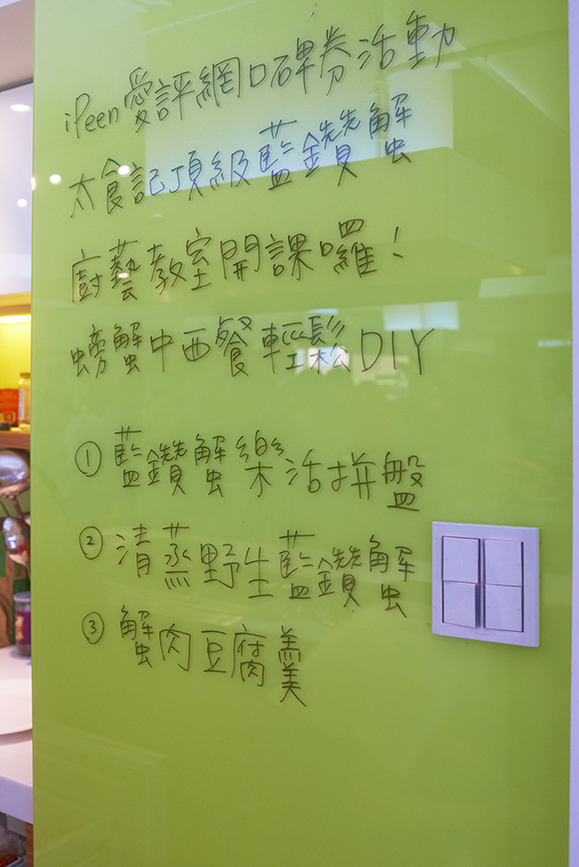 iPeen愛評網口碑券活動
太食記頂級藍鑽蟹
廚藝教室開課囉!
螃蟹中西餐輕鬆DIY
①藍鑽蟹樂活拼盤
②清蒸野生藍鑽蟹
③蟹肉豆腐羹